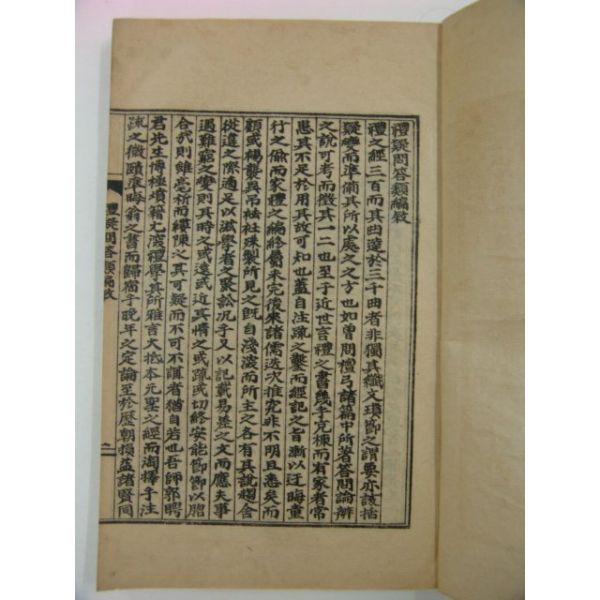 禮疑問答類編敍
禮之經三百而其曲達於三千曲者非獨其纖文瑣節之謂要亦該括
疑變而準備其所以處之之方也如曾問檀弓諸篇中所著答問論辨
之說可考而徵其一二也至于近世言禮之書幾乎充棟而有家者常
患其不足於用其故可知也蓋自注疏之鑿而經記之旨漸以迂晦童
行之偷而家禮之編終屬未完後來諸儒迭次推究非不明且悉矣而
顧或楊襲異吊紘社殊製所見之旣自淺深而所主之各有其說棷舍
從違之際適足以滋學者之聚訟況乎又以記載易差之文而應夫事
過難窮之變則其時之或遠或近其情之或疏或切終安能節節以脗
合哉則雖毫析而縷陳之其可疑而不可不諏者猶自若也吾師郭聘
君先生博極墳籍尤深禮學其所雅言大抵本元聖之經而淘擇乎注
疏之微賾準晦翁之書而歸宿乎晚年之定論至於歷朝損益諸賢同
禮疑問答類編敍
一